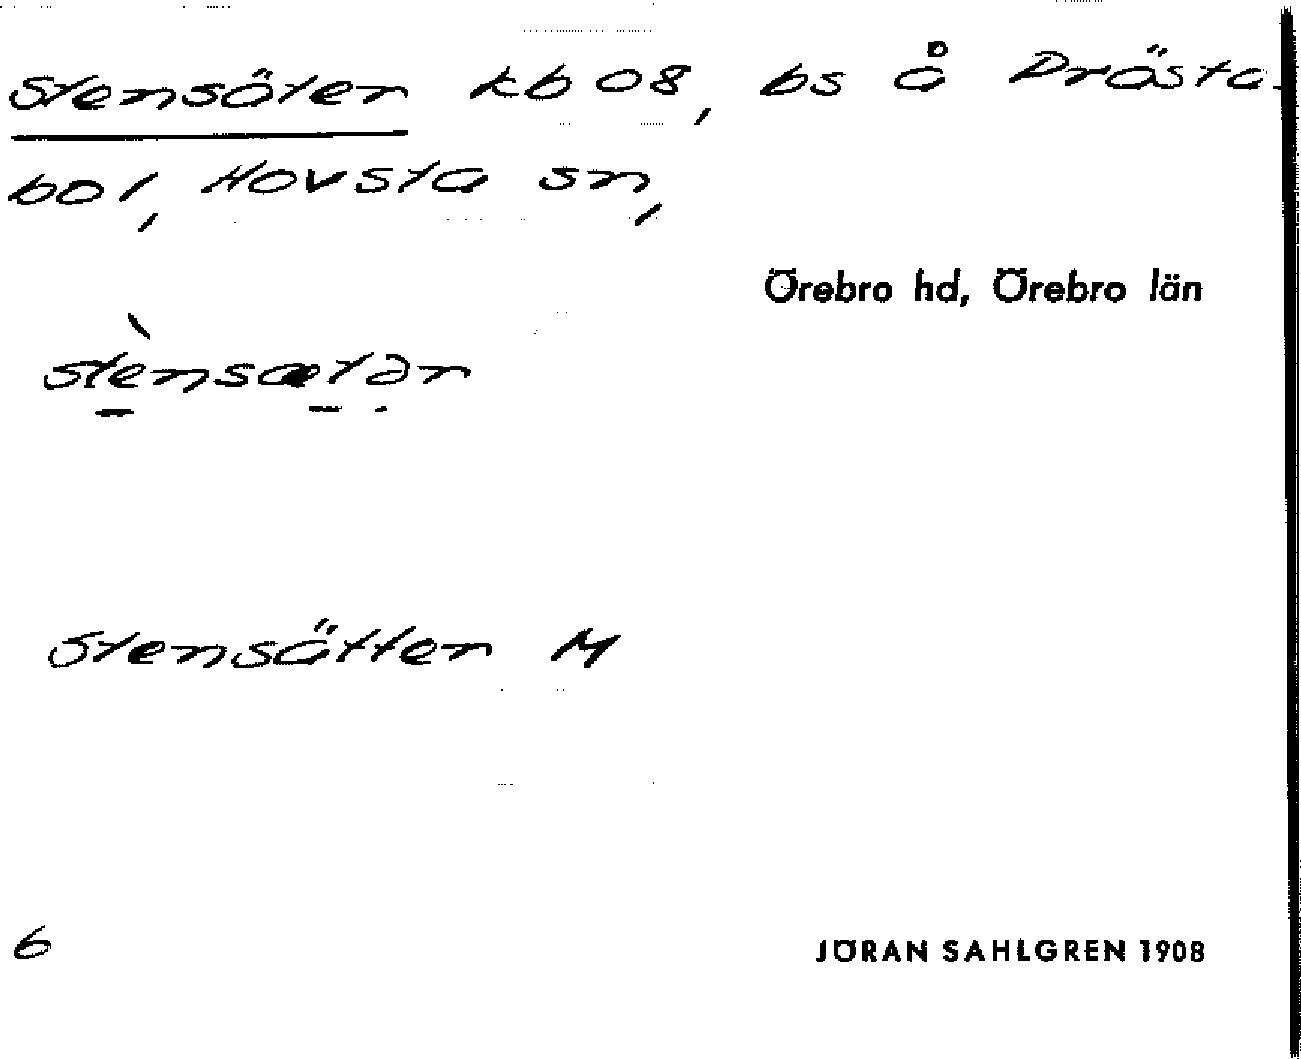 Stensäter kb 08, bs å Drästa-
bol, Hovsta sn,
Örebro hd, Örebro län
stènsætər
Stensätter M
6
JÖRAN SAHLGREN 1908